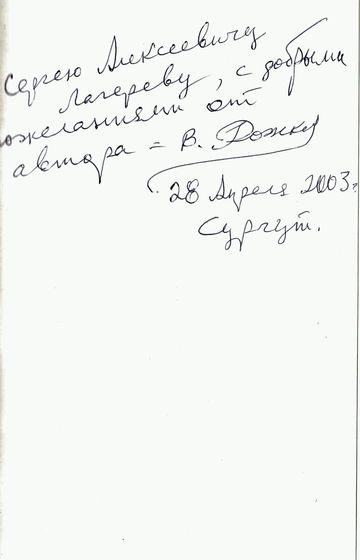 Сергею Алексеевичу
Лагереву, с добрыми
пожеланиями от
автора = В. Рожков
28 Апреля 2003г.
Сургут.